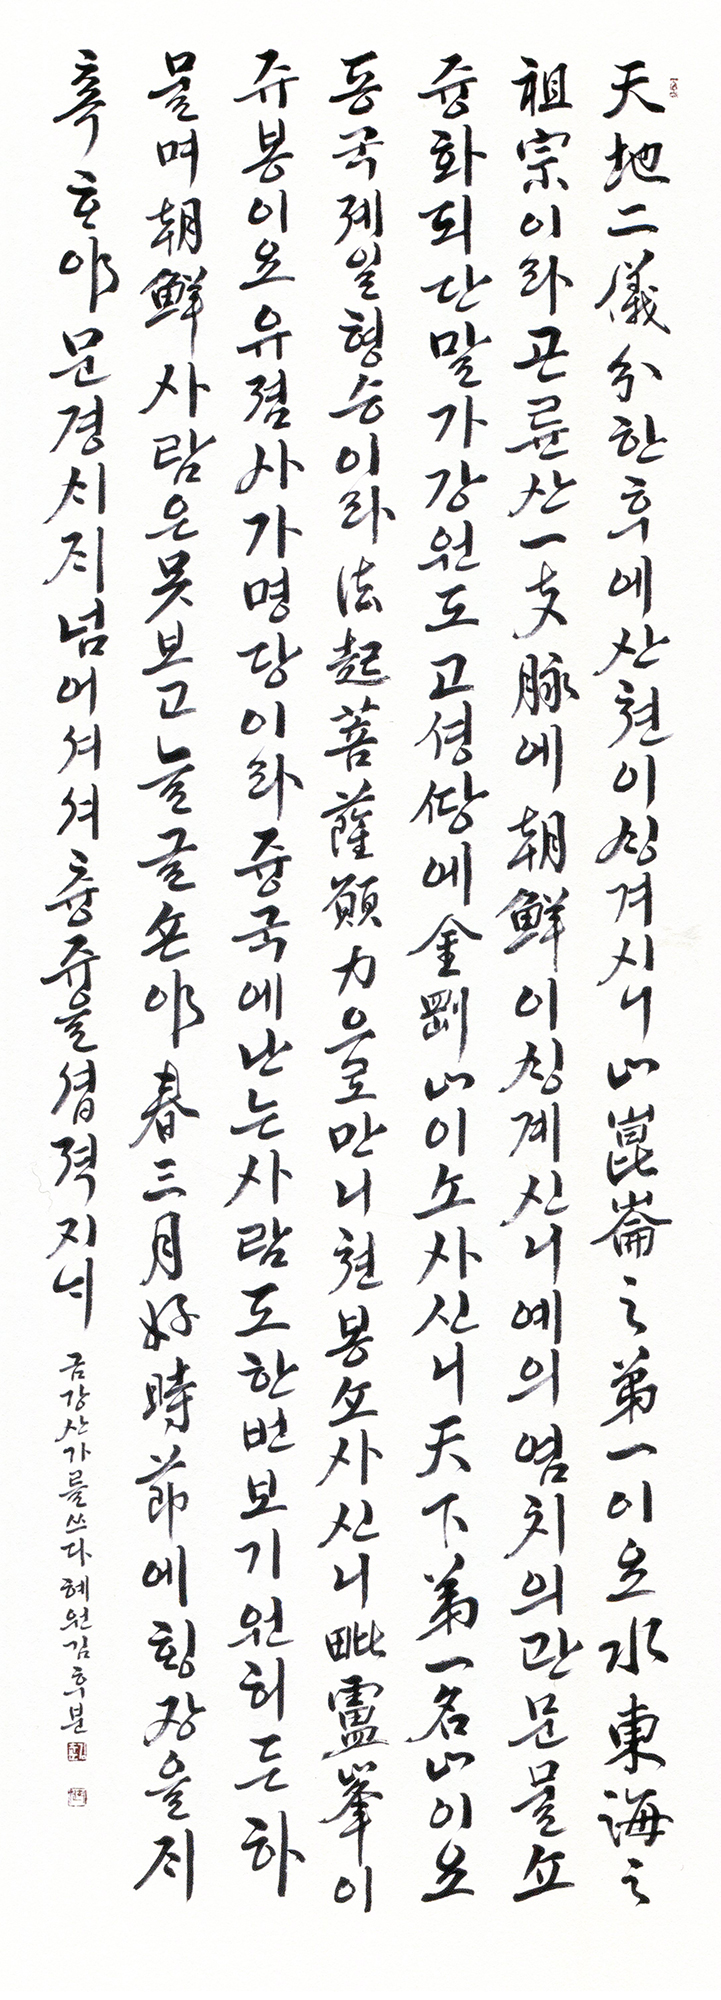 天地二儀分한후에산쳔이싱겨시니山崑崙之第一이요水東海之
祖宗이라곤륜산一支脉에朝鮮이싱계신니예의염치의관문물쇼
즁화되단말가강원도고셩땅에金剛山이쇼사신니天下第一名山이요
동국졔일형승이라法起菩薩願力으로만니쳔봉쇼사신니毗盧峯이
쥬봉이요유졈사가명당이라즁국에난는사람도한번보기원허든하
물며朝鮮사람은못보고늘글쇼야春三月好時節에힝장을지
혹호야문경시지넘어셔셔츙쥬을셥젹지녀
금강산가를쓰다혜원김후분